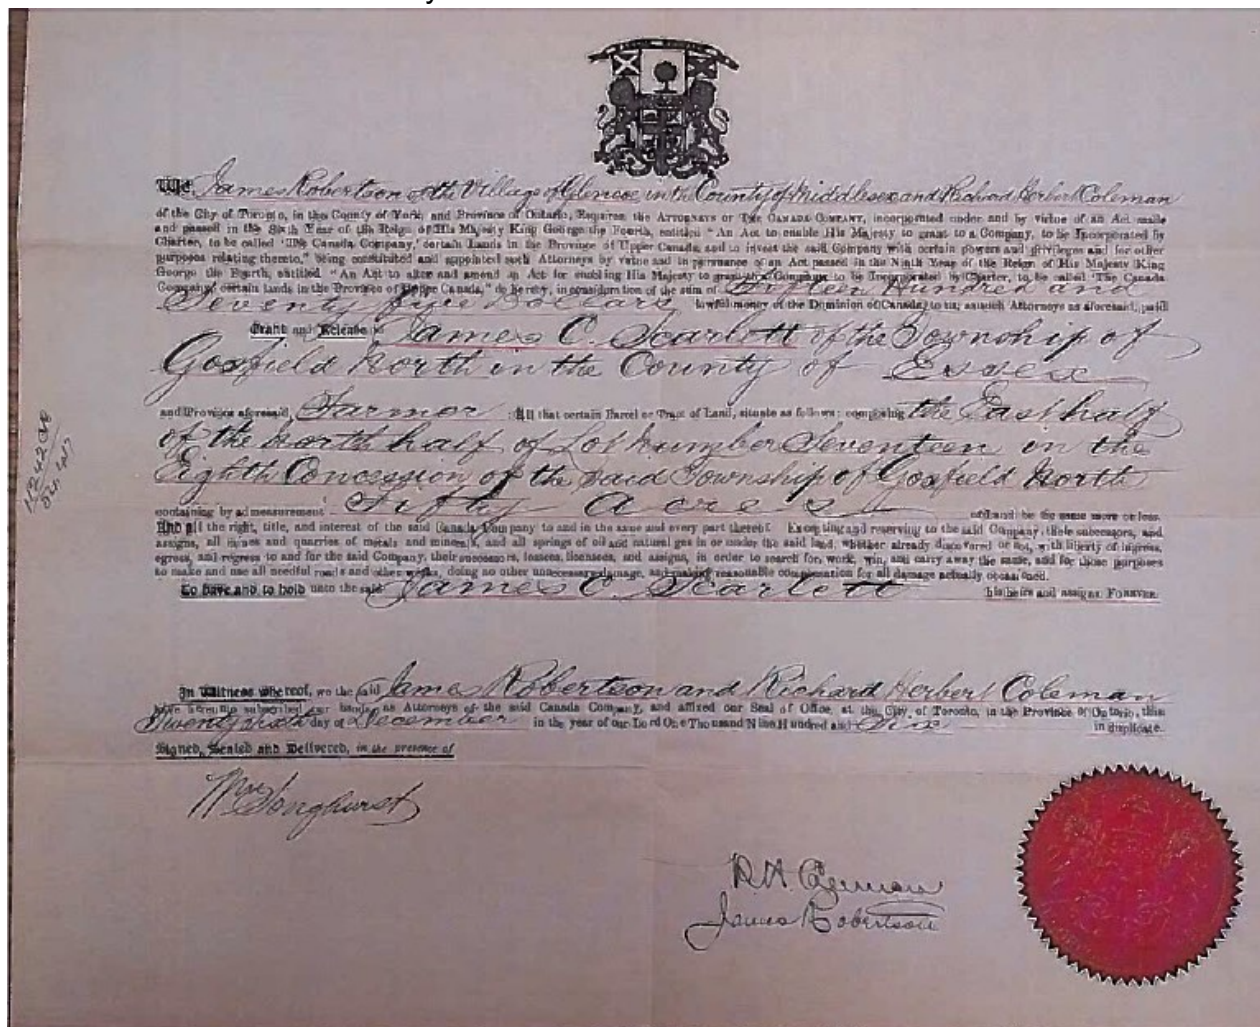 We, James Robertson of the Village of Glencoe in the County of Middlesex and Richard Herbert Coleman
of the City of Toronto, in the County of York, and Province of Ontario, Esquires, the ATTORNEYS OF THE CANADA COMPANY, incorporated under and by virtue of an Act made
and passed in the Sixth Year of the Reign of His Majesty King George the Fourth, entitled "An Act to enable His Majesty to grant to a Company, to be Incorporated by
Charter, to be called 'The Canada Company,' certain Lands in the Province of Upper Canada, and to invest the said Company with certain powers and privileges and for other
purposes relating thereto," being constituted and appointed such Attorneys by virtue and in pursuance of an Act passed in the Ninth Year of the Reign of His Majesty King
George the Fourth, entitled "An Act to alter and amend an Act for enabling His Majesty to grant to a Company to be Incorporated by Charter, to be called 'The Canada
Company,' certain lands in the Province of Upper Canada," do hereby, in consideration of the sum of Fifteen Hundred and
Seventy five Dollars lawful money of the Dominion of Canada, to us, as such Attorneys as aforesaid, paid
Grant and Release to James C. Scarlett of the Township of
Gosfield North in the County of Essex
and Province aforesaid, Farmer : All that certain Parcel or Tract of Land, situate as follows: composing the East half
of the North half of Lot Number Seventeen in the
Eighth Concession of the said Township of Gosfield North
containing by admeasurement Fifty Acres of land be the same more or less.
And all the right, title, and interest of the said Canada Company to and in the same and every part thereof. Excepting and reserving to the said Company, their successors, and
assigns, all mines and quarries of metals and minerals, and all springs of oil and natural gas in or under the said land, whether already discovered or not, with liberty of ingress,
egress, and regress to and for the said Company, their successors, lessees, licensees, and assigns, in order to search for, work, win, and carry away the same, and for those purposes
to make and use all needful roads and other works, doing no other unnecessary damage, and making reasonable compensation for all damage actually occasioned.
To have and to hold unto the said James C. Scarlett his heirs and assigns FOREVER.
In Witness whereof, we the said James Robertson and Richard Herbert Coleman
have hereunto subscribed our hands, as Attorneys of the said Canada Company, and affixed our Seal of Office, at the City of Toronto, in the Province of Ontario, this
Twenty sixth day of December in the year of our Lord One Thousand Nine Hundred and Six in duplicate.
Signed, Sealed and Delivered, in the presence of
Wm Songhurst
R H Coleman
James Robertson